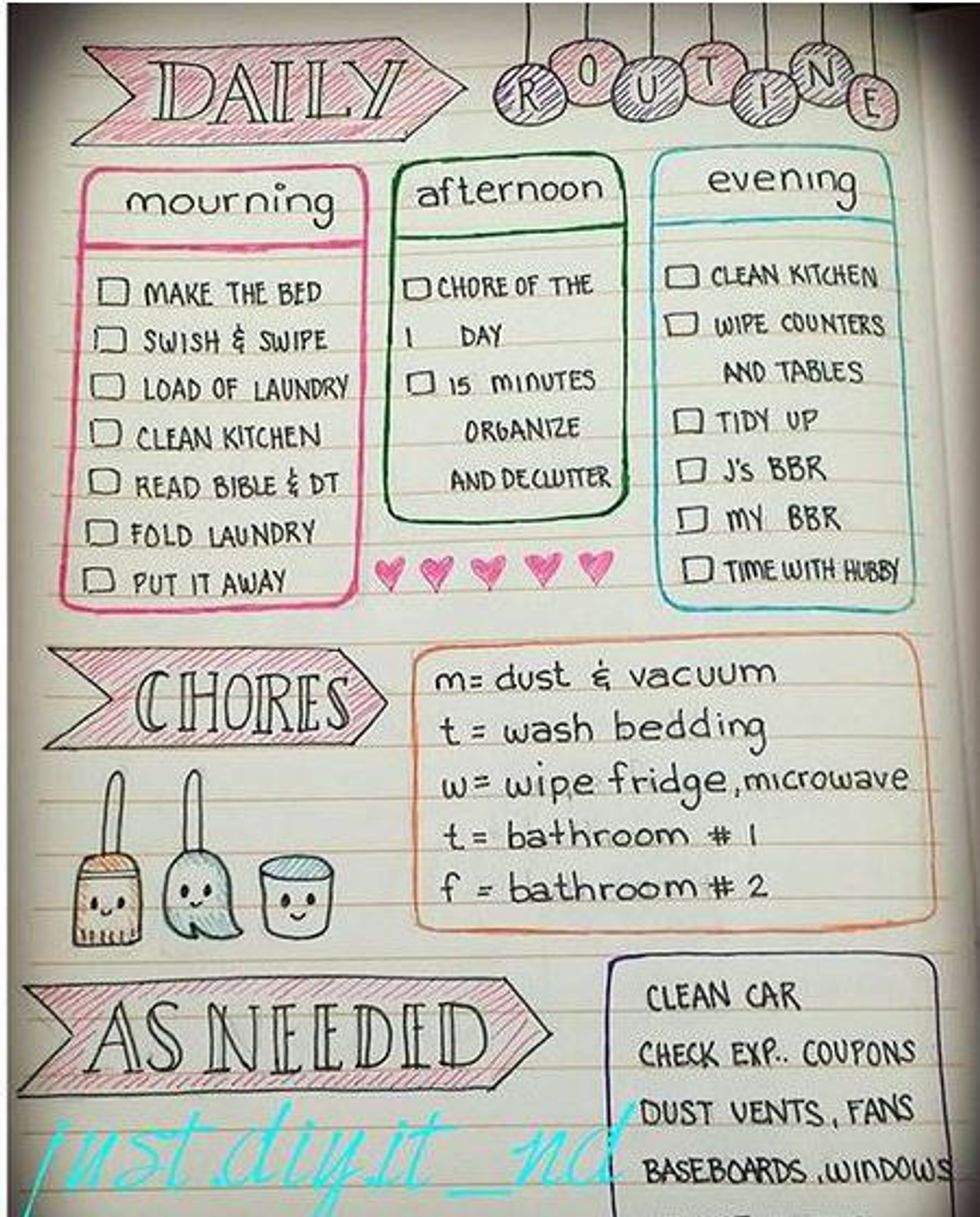 DAILY ROUTINE
mourning
MAKE THE BED
SWISH & SWIPE
LOAD OF LAUNDRY
CLEAN KITCHEN
READ BIBLE & DT
FOLD LAUNDRY
PUT IT AWAY
afternoon
CHORE OF THE
DAY
15 MINUTES
ORGANIZE
AND DECLUTTER
evening
CLEAN KITCHEN
WIPE COUNTERS
AND TABLES
TIDY UP
J's BBR
MY BBR
TIME WITH HUBBY
CHORES
m= dust & vacuum
t = wash bedding
w= wipe fridge, microwave
t = bathroom # 1
f = bathroom # 2
AS NEEDED
CLEAN CAR
CHECK EXP.. COUPONS
DUST VENTS, FANS
BASEBOARDS, WINDOWS
just.diy.it_nd